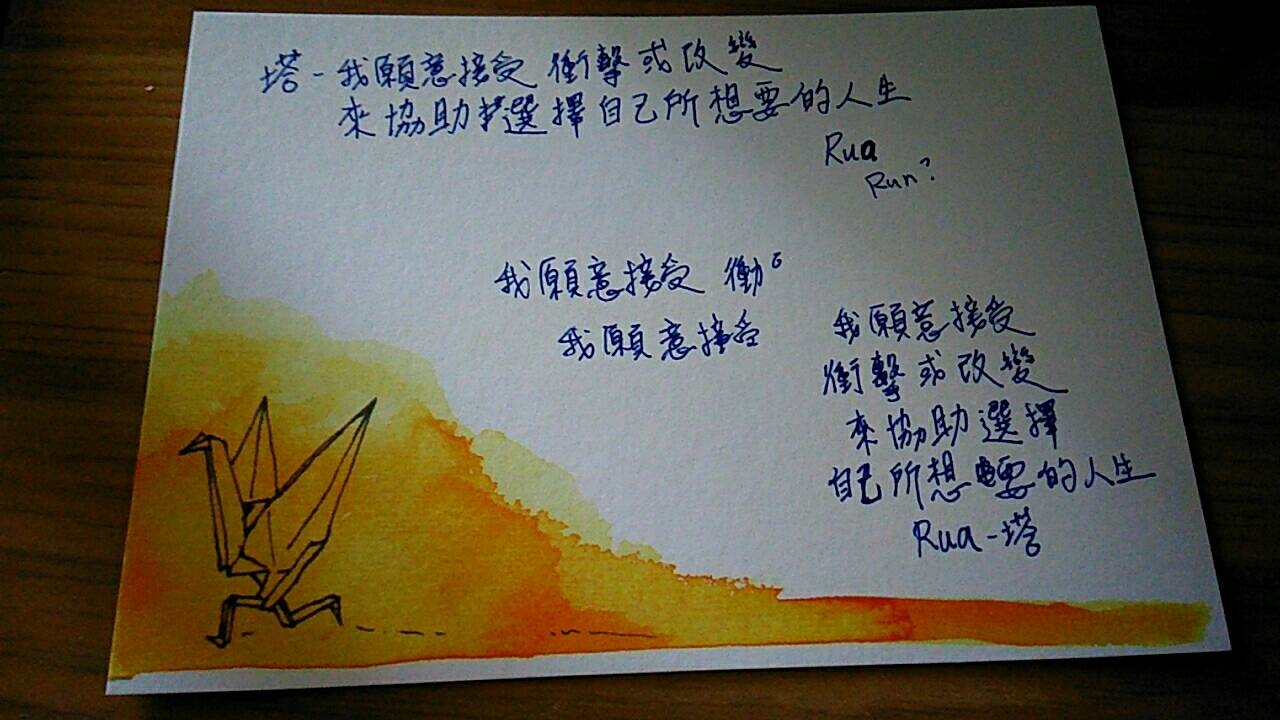 塔-我願意接受 衝擊或改變
來協助選擇自己所想要的人生
Rua
Run?
我願意接受
我願意接受
我願意接受
衝擊或改變
來協助選擇
自己所想要的人生
Rua-塔